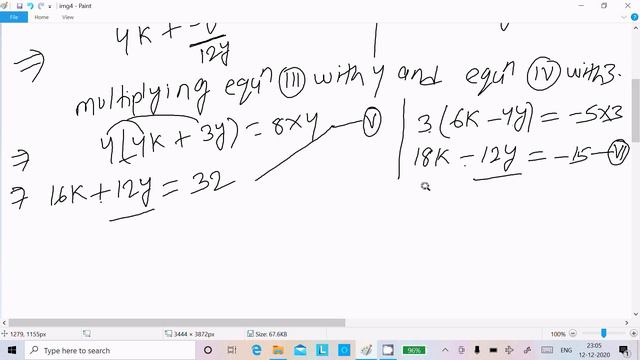 img4 - Paint
File
Home
View
4K +
12y
⇒
multiplying equⁿ (III) with 4 and equⁿ (IV) with 3.
⇒ 4(4K + 3y) = 8×4 — (V)
⇒ 16K + 12y = 32
3(6K - 4y) = -5×3
18K - 12y = -15 — (VI)
1279, 1155px
3444 × 3872px
Size: 67.6KB
100%
96%
ENG
23:05
12-12-2020